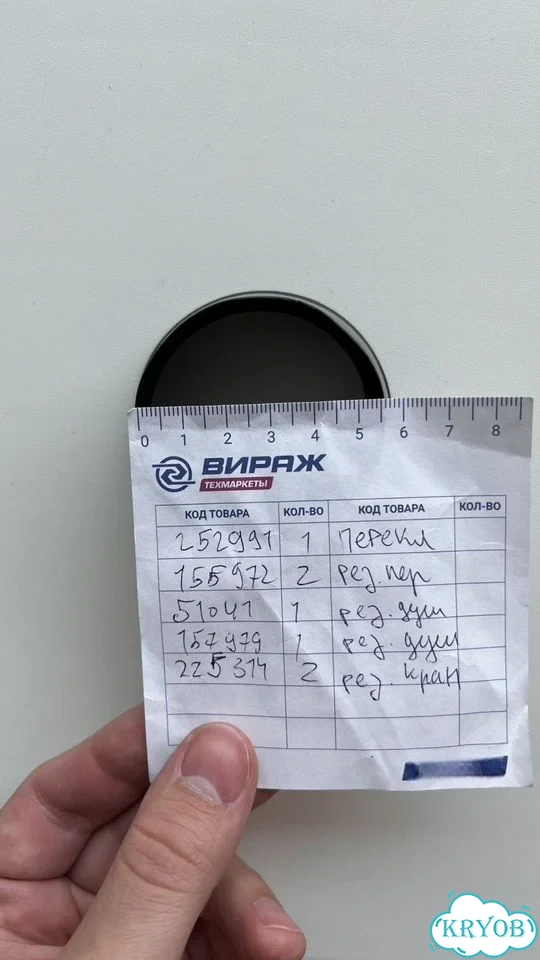 0 1 2 3 4 5 6 7 8
ВИРАЖ
ТЕХМАРКЕТЫ
КОД ТОВАРА КОЛ-ВО КОД ТОВАРА КОЛ-ВО
252991 1 Перекл
155972 2 рез. пер
51041 1 рез. душ
157979 1 рез. душ
225314 2 рез. кран
KRYOB